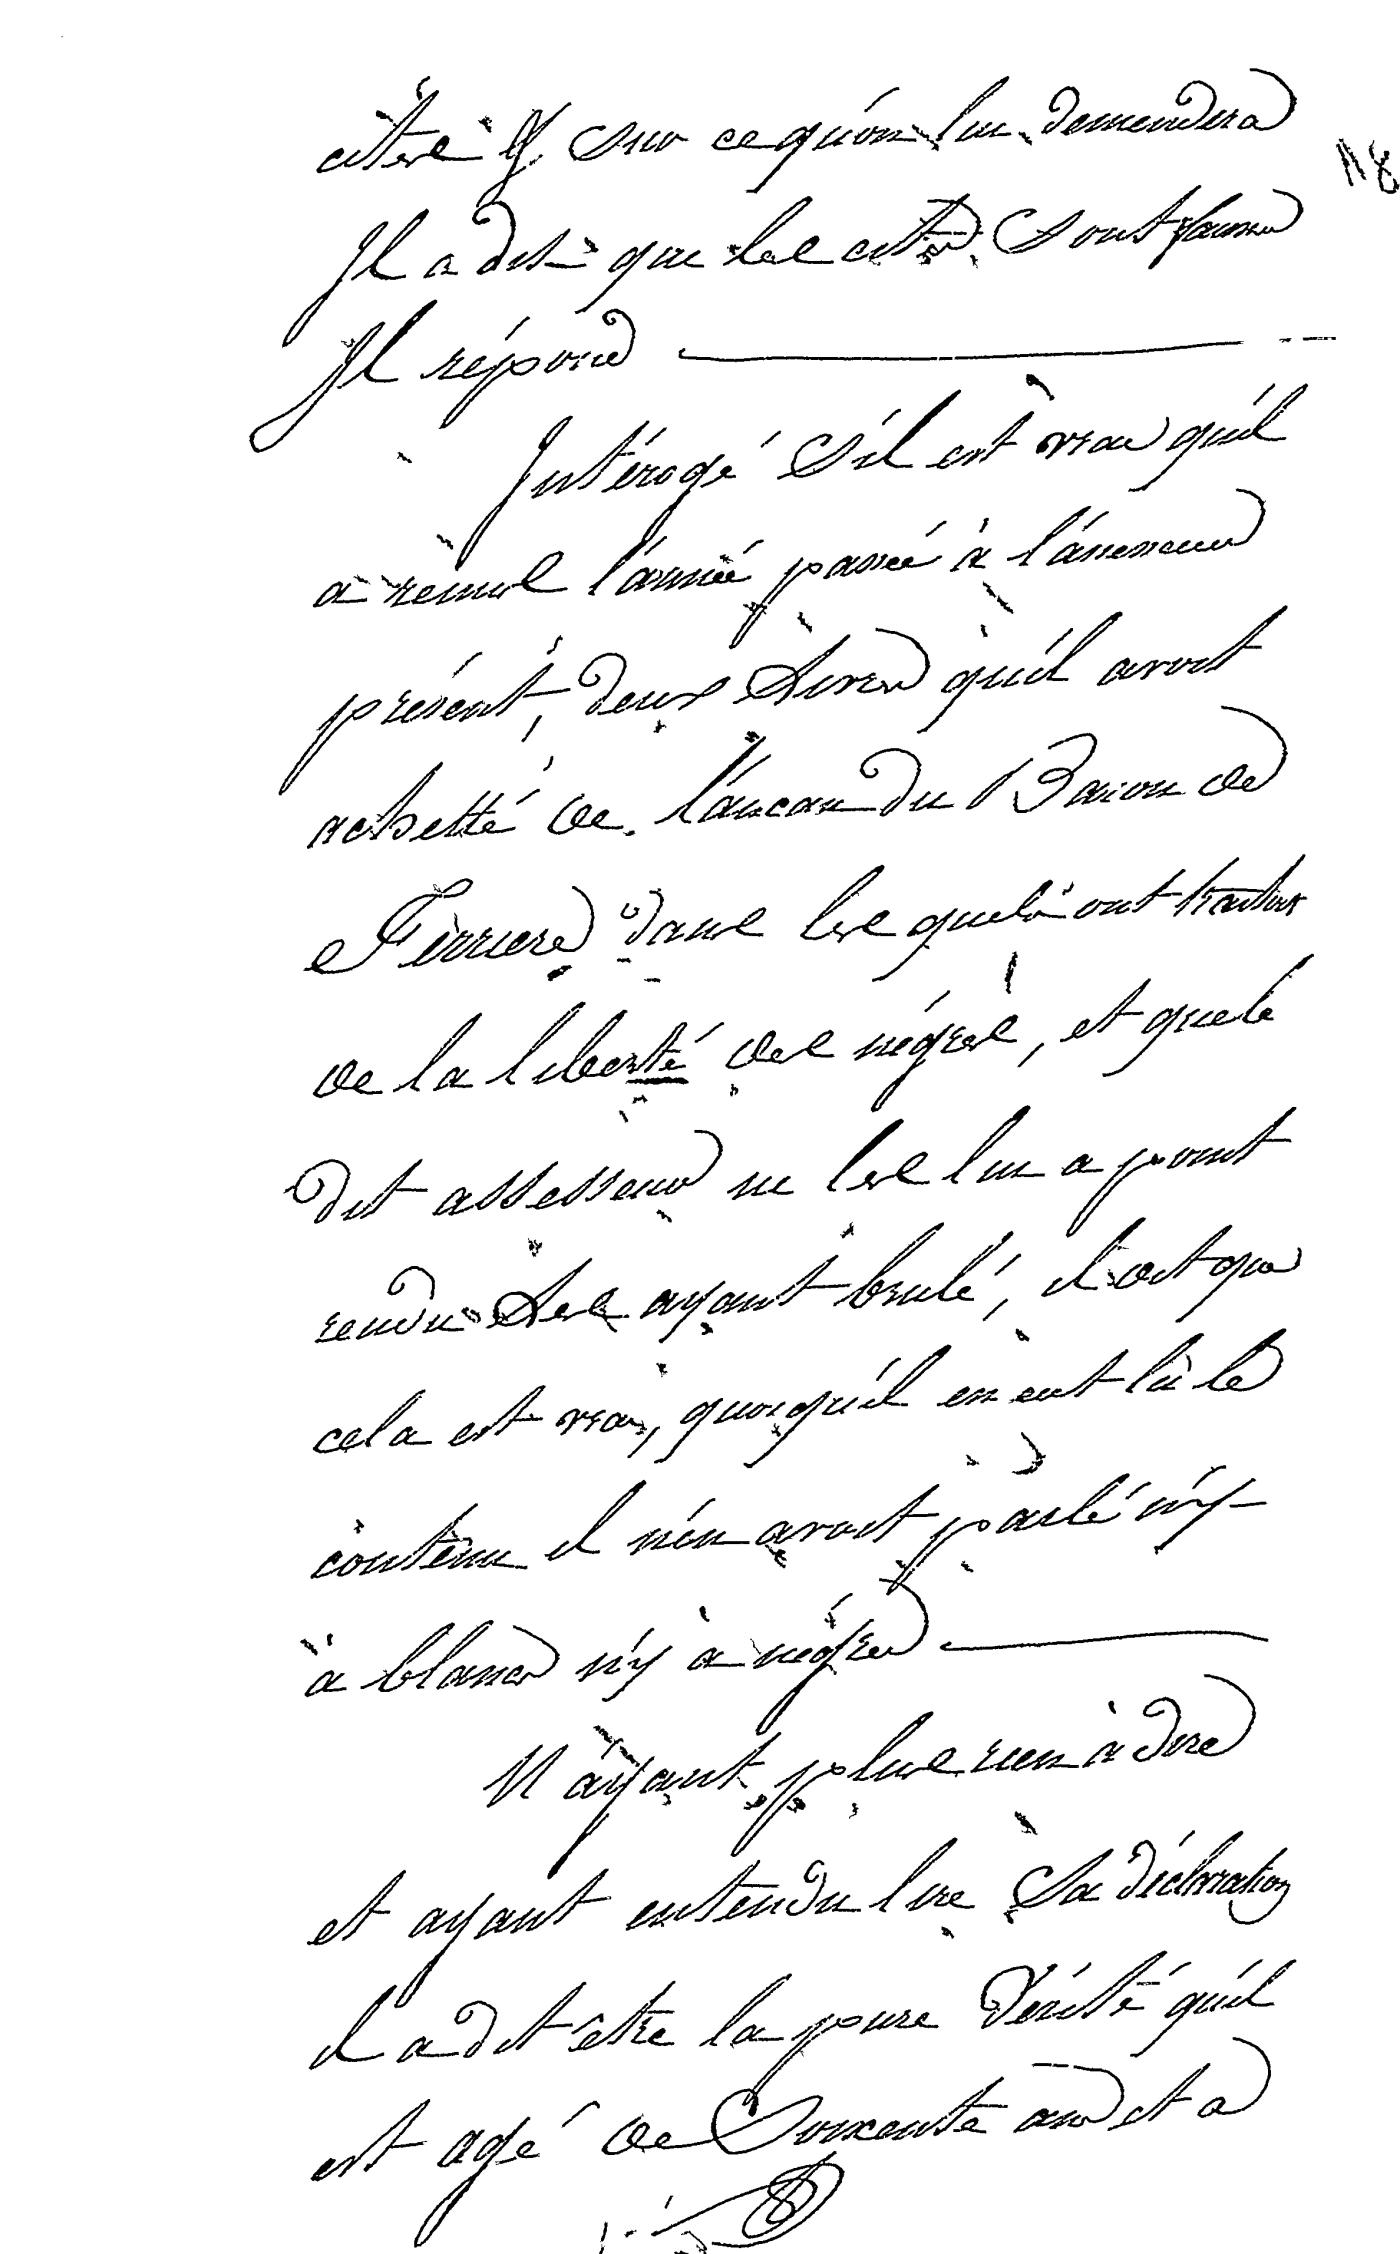 cités & sur ce qu'on lui demendera
18
Il a dit que les cités sont fausses
Il répond
Intérogé s'il est vrai qu'il
a remis l'année passée à l'assesseur
présent, deux livres qu'il avoit
achetté de l'ancan du Baron de
Ferriere dans les quels ont traitoit
de la liberté des négres, et que le
dit assesseur ne les lui a point
rendu les ayant brulé, il dit que
cela est vrai, quoiqu'il en eut lù le
contenu il n'en avoit parlé n'y
à blancs n'y à négres
N'ayant plus rien à dire
et ayant entendu lire sa déclaration
il a dit être la pure Vérité qu'il
est agé de soixente ans et a